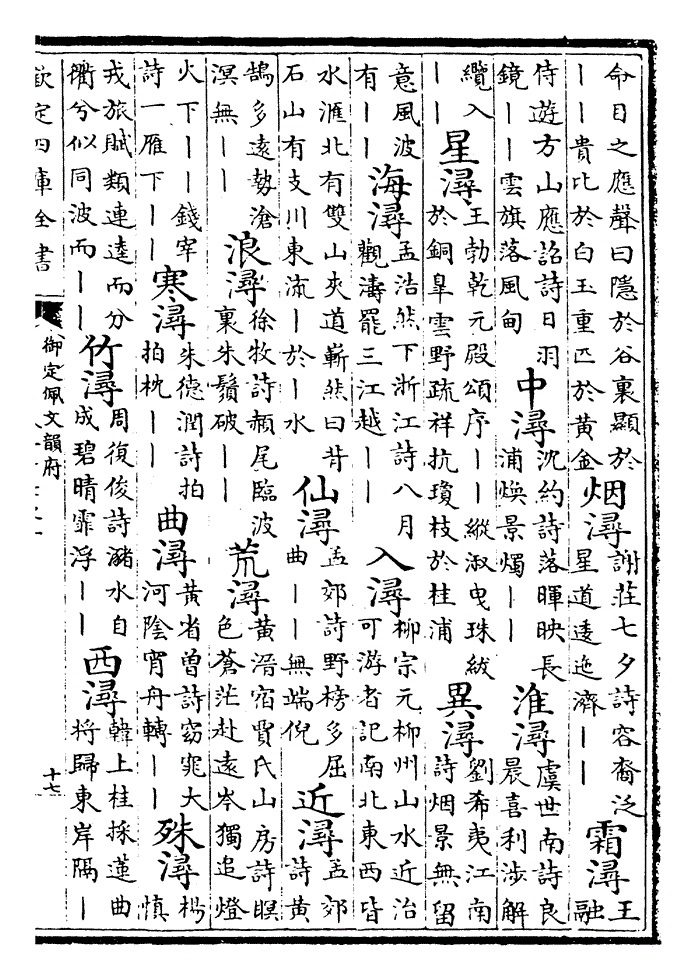 命日之應聲曰隱於谷裏顯於
丨丨貴比於白玉重匹於黃金
烟潯
謝莊七夕詩容裔泛
星道逶迤濟丨丨
霜潯
王
融
侍遊方山應詔詩日羽
鏡丨丨雲旗落風甸
中潯
沈約詩落暉映長
浦煥景燭丨丨
淮潯
虞世南詩良
晨喜利涉解
纜入
丨丨
星潯
王勃乾元殿頌序丨丨縱淑曳珠紱
於銅臯雲野疏祥抗瓊枝於桂浦
異潯
劉希夷江南
詩烟景無留
意風波
有丨丨
海潯
孟浩然下浙江詩八月
觀濤罷三江越丨丨
入潯
柳宗元柳州山水近治
可游者記南北東西皆
水滙北有雙山夾道嶄然曰背
石山有支川東流丨於丨水
仙潯
孟郊詩野榜多屈
曲丨丨無端倪
近潯
孟郊
詩黃
鵠多遠勢滄
溟無丨丨
浪潯
徐牧詩頳尾臨波
裏朱鬚破丨丨
荒潯
黃滔宿賈氏山房詩暝
色蒼茫赴遠岑獨追燈
火下丨丨錢宰
詩一雁下丨丨
寒潯
朱德潤詩拍
拍枕丨丨
曲潯
黃省曾詩窈窕大
河陰宵舟轉丨丨
殊潯
楊
慎
戎旅賦類連逵而分
衢兮似同波而丨丨
竹潯
周復俊詩潞水自
成碧晴霏浮丨丨
西潯
韓上桂採蓮曲
將歸東岸隔丨
欽定四庫全書
御定佩文韻府
十七